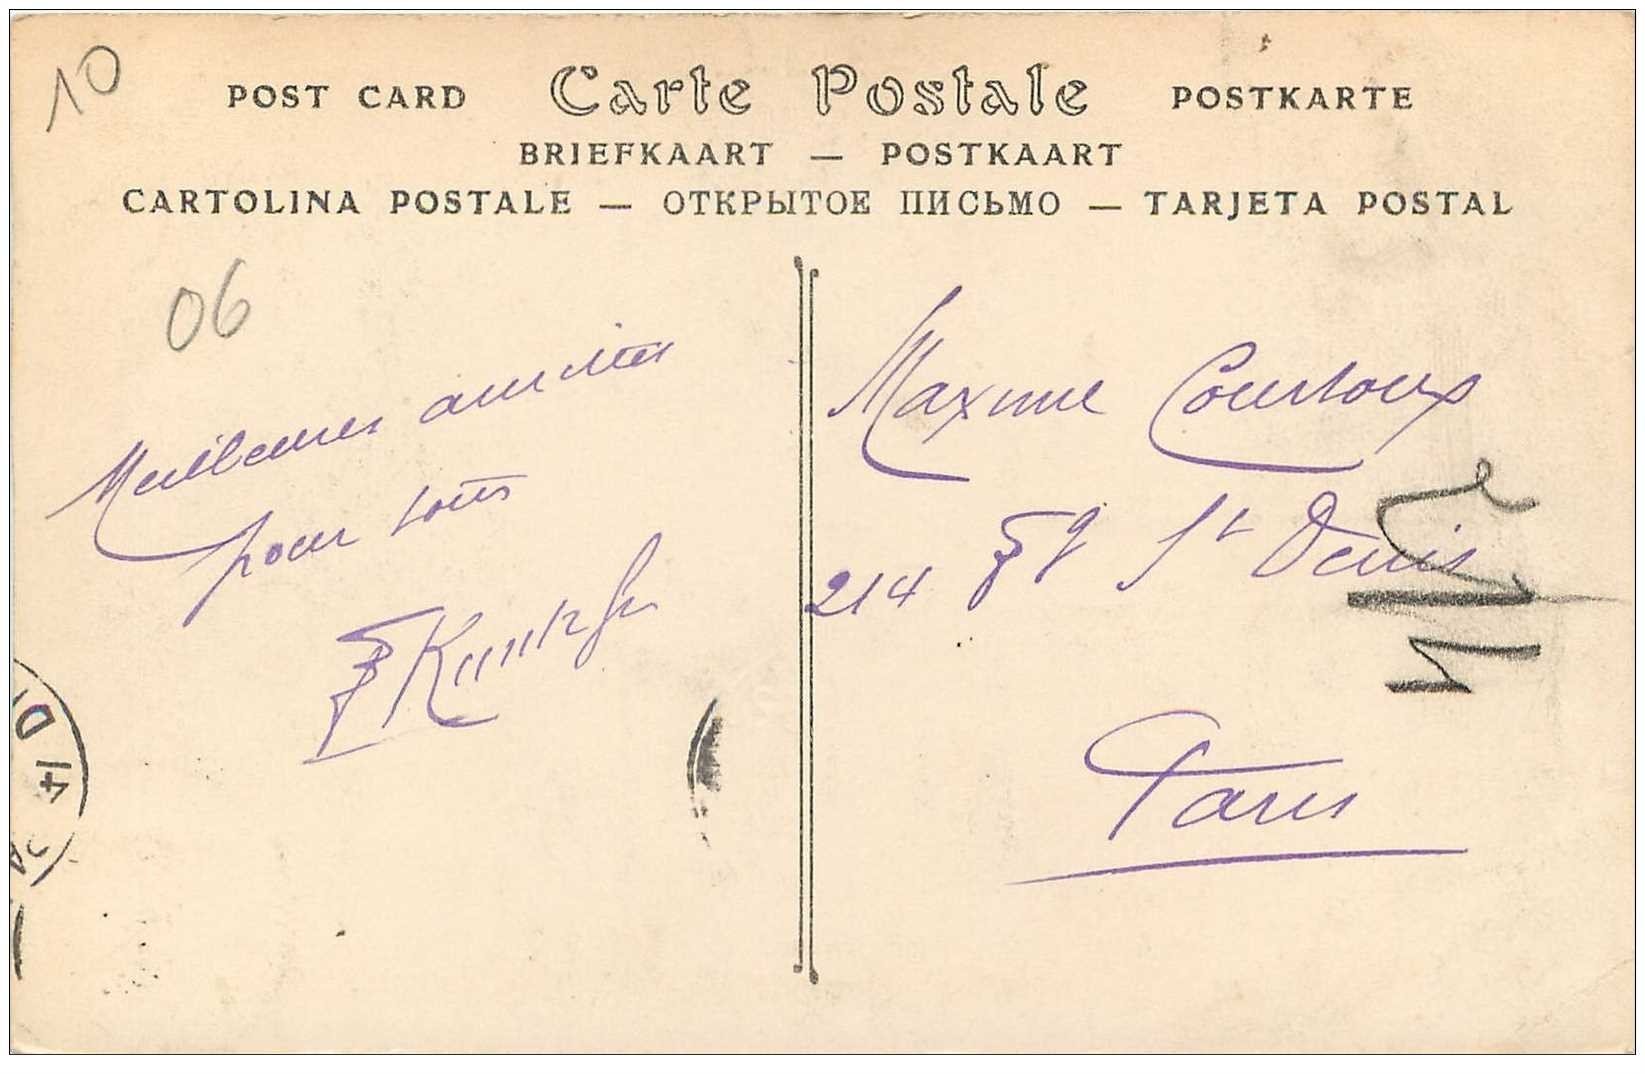 10
POST CARD Carte Postale POSTKARTE
BRIEFKAART — POSTKAART
CARTOLINA POSTALE — ОТКРЫТОЕ ПИСЬМО — TARJETA POSTAL
06
Meilleures amitiés
pour tous
Maxime Courtoux
214 Fg St Denis
Paris
14